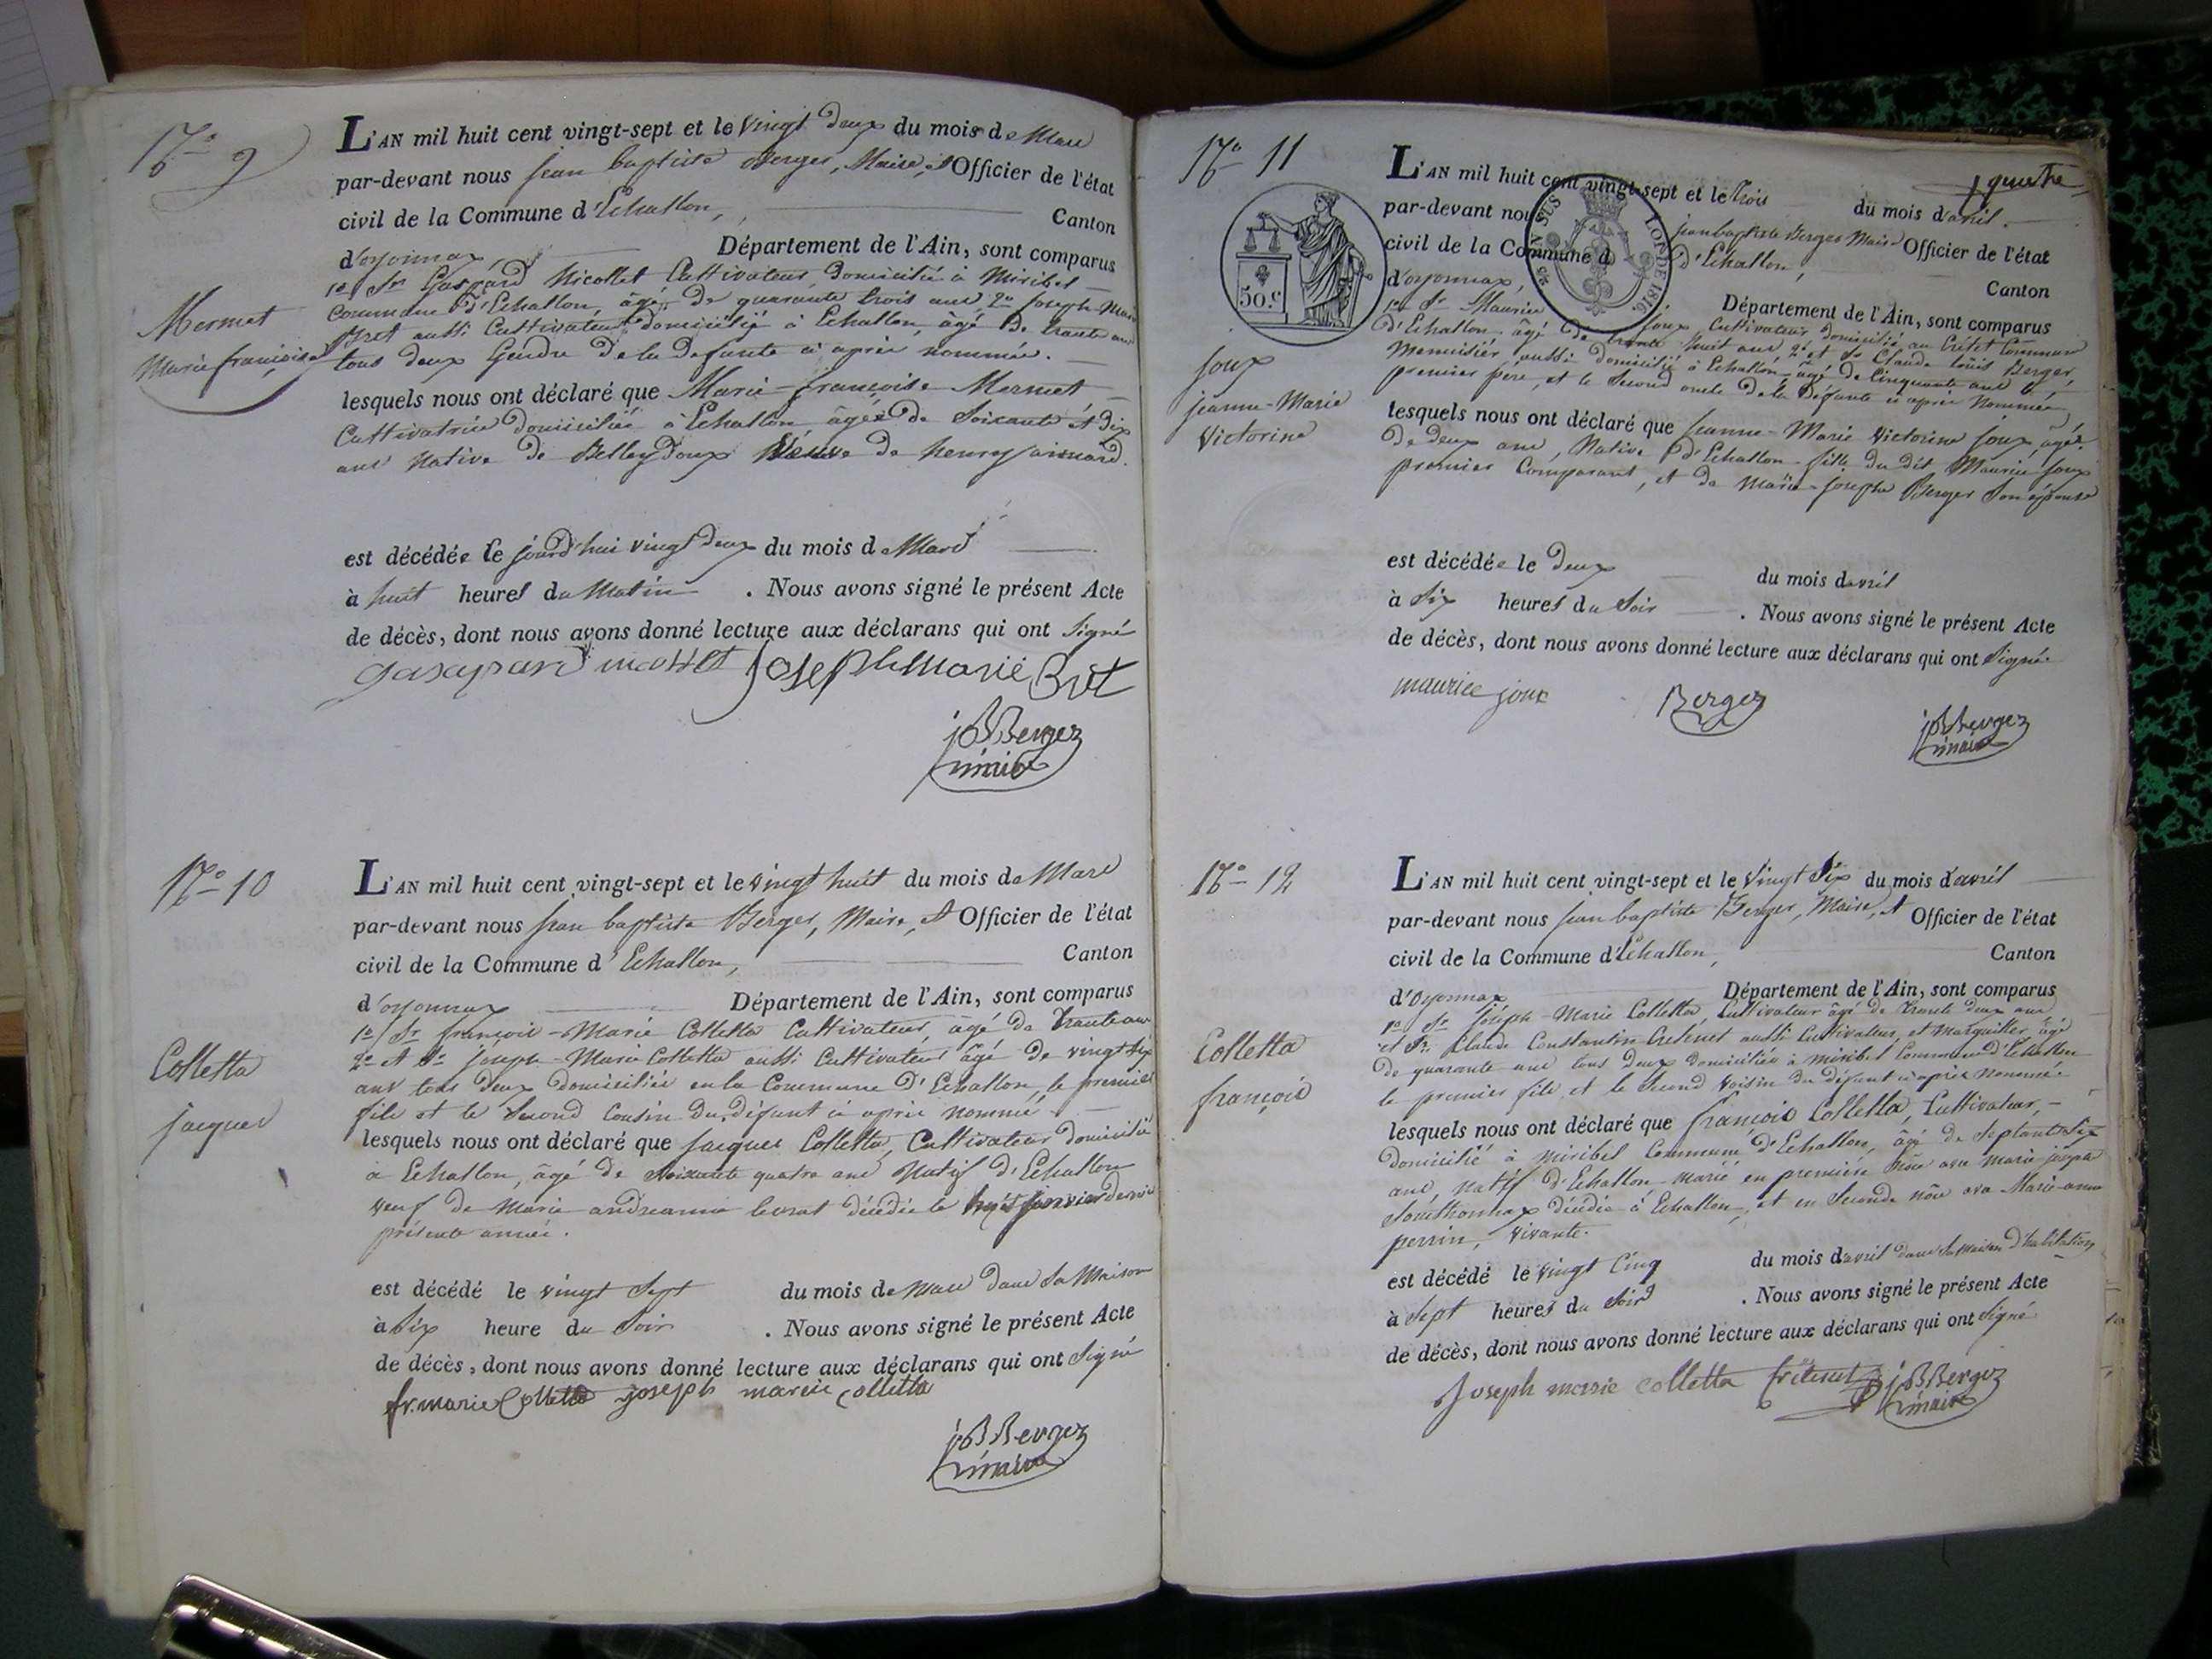 N.° 9
L'AN mil huit cent vingt-sept et le Vingt Deux du mois de Mars
par-devant nous jean baptiste Berger, Maire, et Officier de l'état
civil de la Commune d'Echallon, Canton
d'oyonnax, Département de l'Ain, sont comparus
1.° Sr. Gaspard Nicollet Cultivateur domicilié à Miribel
Commune d'Echallon, âgé de quarante trois ans, 2.° Joseph-Marie
Bret aussi Cultivateur domicilié à Echallon, âgé de trente ans
tous deux Gendre de la Defunte ci après nommée.
Mermet
Marie françoise
lesquels nous ont déclaré que Marie-françoise Mermet
Cultivatrice domiciliée à Echallon, âgée de Soixante et Dix
ans Native de Belleydoux Veuve de henry
est décédée le jourd'hui vingt deux du mois de Mars
à huit heures du Matin. Nous avons signé le présent Acte
de décès, dont nous avons donné lecture aux déclarans qui ont Signé
Joseph Marie Bret
jBBerger
maire
N.° 10
L'AN mil huit cent vingt-sept et le vingt huit du mois de Mars
par-devant nous jean baptiste Berger, Maire, et Officier de l'état
civil de la Commune d'Echallon, Canton
d'oyonnax Département de l'Ain, sont comparus
1.° Sr. françois-Marie Colletta Cultivateur, âgé de Trente ans
2.° et Sr. joseph-Marie Colletta aussi Cultivateur âgé de vingt Six
ans tous deux domiciliés en la Commune d'Echallon, le premier
fils et le Second Cousin du défunt ci après nommé
Colletta
jacques
lesquels nous ont déclaré que jacques Colletta, Cultivateur domicilié
à Echallon, âgé de Soixante quatre ans Natif d'Echallon
veuf de Marie andréanne décédée le huit janvier dernier
présente année.
est décédé le vingt Sept du mois de Mars dans Sa Maison
à Six heure du Soir. Nous avons signé le présent Acte
de décès, dont nous avons donné lecture aux déclarans qui ont Signé
fr. marie Colletta joseph marie colletta
jBBerger
maire
N.° 11
quatre
L'AN mil huit cent vingt-sept et le trois du mois d'avril
par-devant nous jean baptiste Berger Maire Officier de l'état
civil de la Commune d'Echallon, Canton
d'oyonnax, Département de l'Ain, sont comparus
50.c
LOI DE 1816.
1.° Sr. Maurice Joux, Cultivateur domicilié au Crétet Commune
d'Echallon âgé de trente huit ans 2.° et Sr. Claude Louis Berger,
Menuisier aussi domicilié à Echallon âgé de Cinquante ans
premier père, et le Second oncle de la Défunte ci après Nommée
Joux
jeanne-Marie
Victorine
lesquels nous ont déclaré que jeanne-Marie Victorine Joux, âgée
de deux ans, Native d'Echallon fille du dit Maurice Joux
premier Comparant, et de Marie-josephe Berger Son épouse
est décédée le Deux du mois d'avril
à Six heures du Soir. Nous avons signé le présent Acte
de décès, dont nous avons donné lecture aux déclarans qui ont Signé
maurice joux Berger
jBBerger
maire
N.° 12
L'AN mil huit cent vingt-sept et le Vingt Six du mois d'avril
par-devant nous jean baptiste Berger, Maire, et Officier de l'état
civil de la Commune d'Echallon, Canton
d'Oyonnax Département de l'Ain, sont comparus
1.° Sr. joseph-Marie Colletta, Cultivateur âgé de trente deux ans
et Sr. Claude Constantin aussi Cultivateur, et Marguillier âgé
de quarante ans tous deux domiciliés à Miribel Commune d'Echallon
le premier fils et le Second Voisin du défunt ci après nommé
Colletta
françois
lesquels nous ont déclaré que françois Colletta, Cultivateur,
domicilié à Miribel Commune d'Echallon, âgé de Septante Six
ans, natif d'Echallon marié en première avec Marie josephe
décédée à Echallon, et en Seconde Marie-anne
perrin, vivante.
est décédé le Vingt Cinq du mois d'avril dans Sa Maison d'habitation
à Sept heures du Soir. Nous avons signé le présent Acte
de décès, dont nous avons donné lecture aux déclarans qui ont Signé
Joseph marie colletta jBBerger
maire